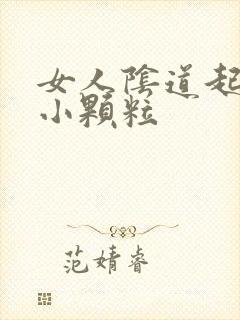 女人陰道起
小顆粒
范婧睿